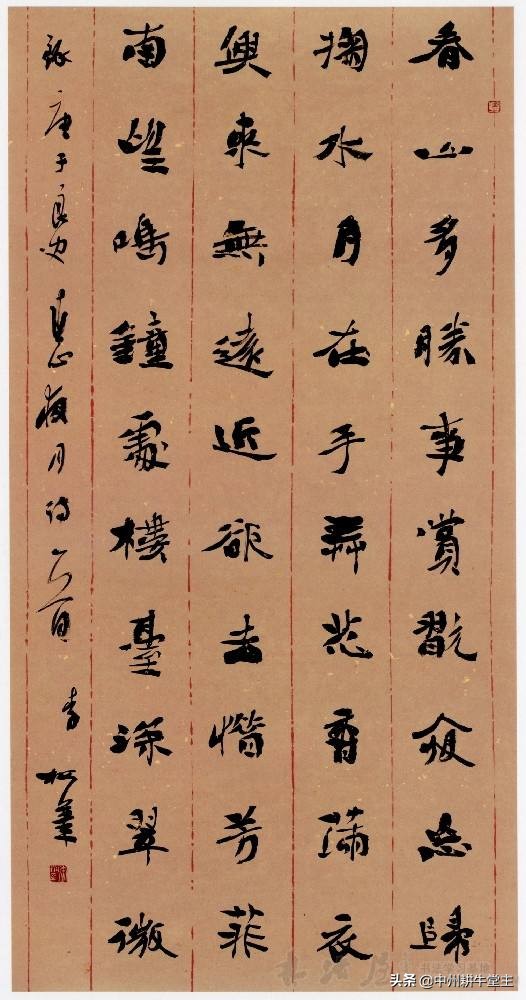 春山多勝事賞翫夜忘歸
掬水月在手弄花香滿衣
興來無遠近欲去惜芳菲
南望鳴鐘處樓臺深翠微
錄唐于良史春山夜月詩一首 李松
头条 @中州耕牛堂主